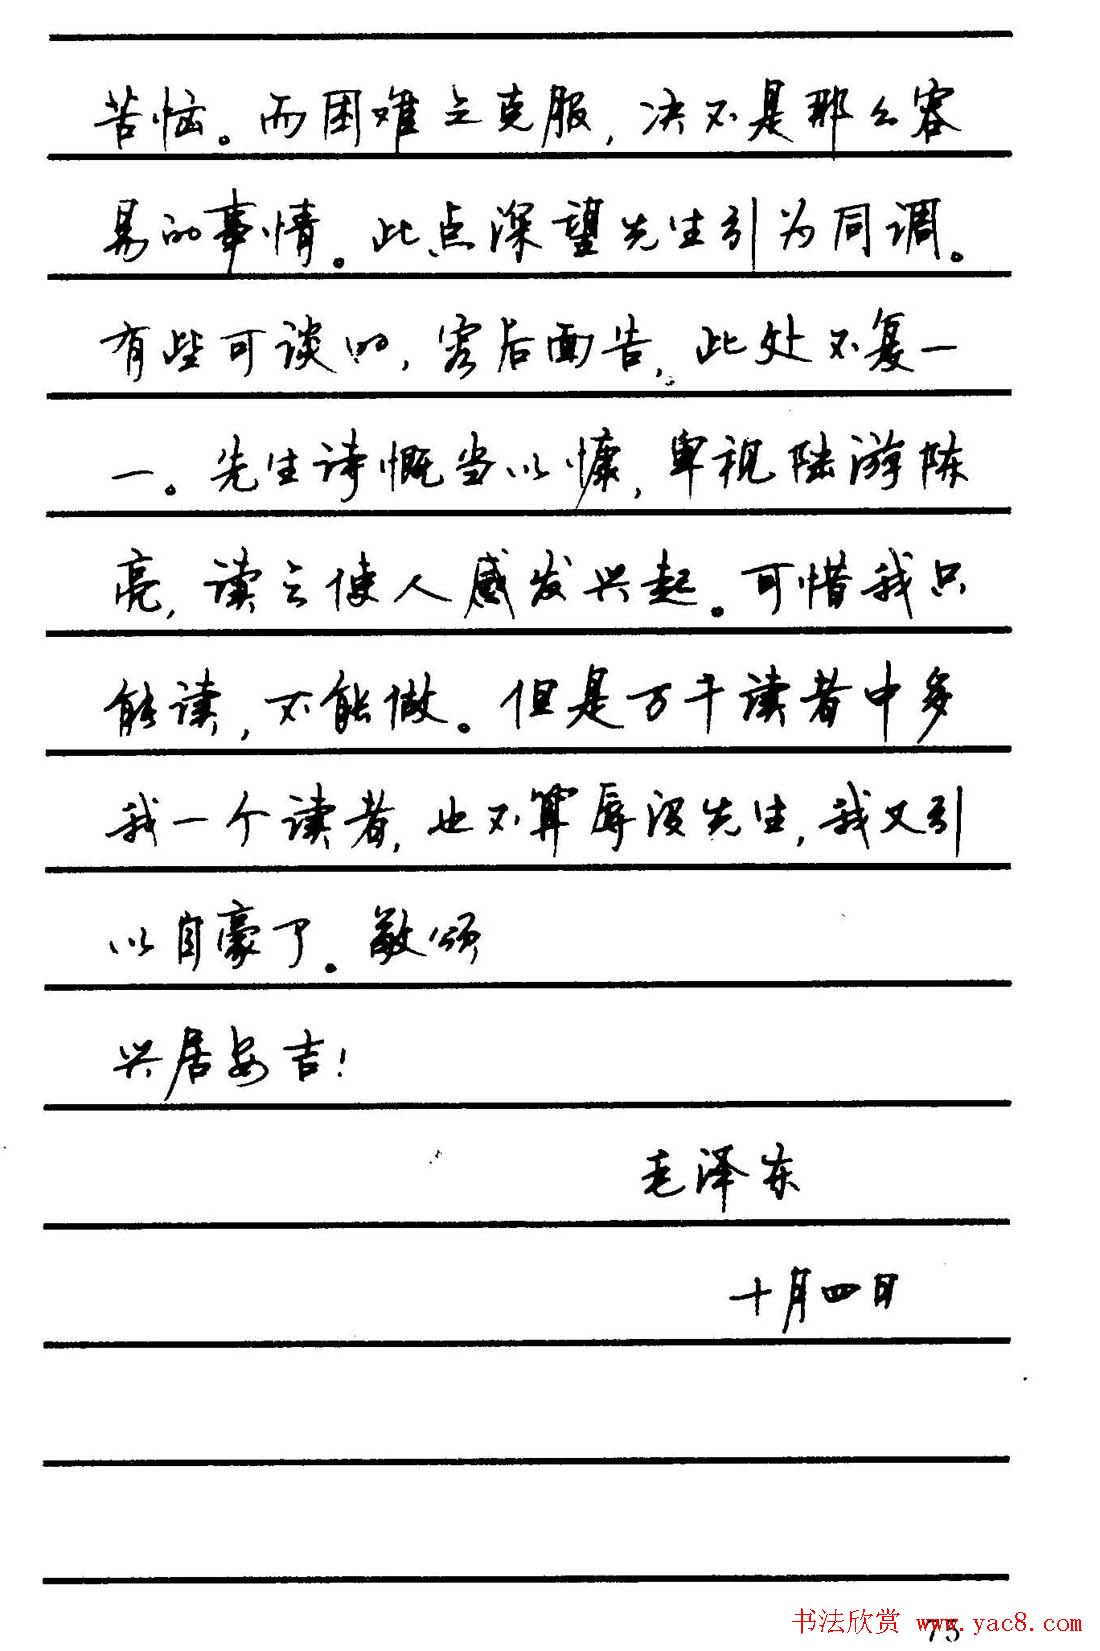 苦恼。而困难之克服，决不是那么容
易的事情。此点深望先生引为同调。
有些可谈的，容后面告，此处不复一
一。先生诗慨当以慷，卑视陆游陈
亮，读之使人感发兴起。可惜我只
能读，不能做。但是万千读者中多
我一个读者，也不算辱没先生，我又引
以自豪了。敬颂
兴居安吉！
毛泽东
十月四日
书法欣赏 www.yac8.com
75